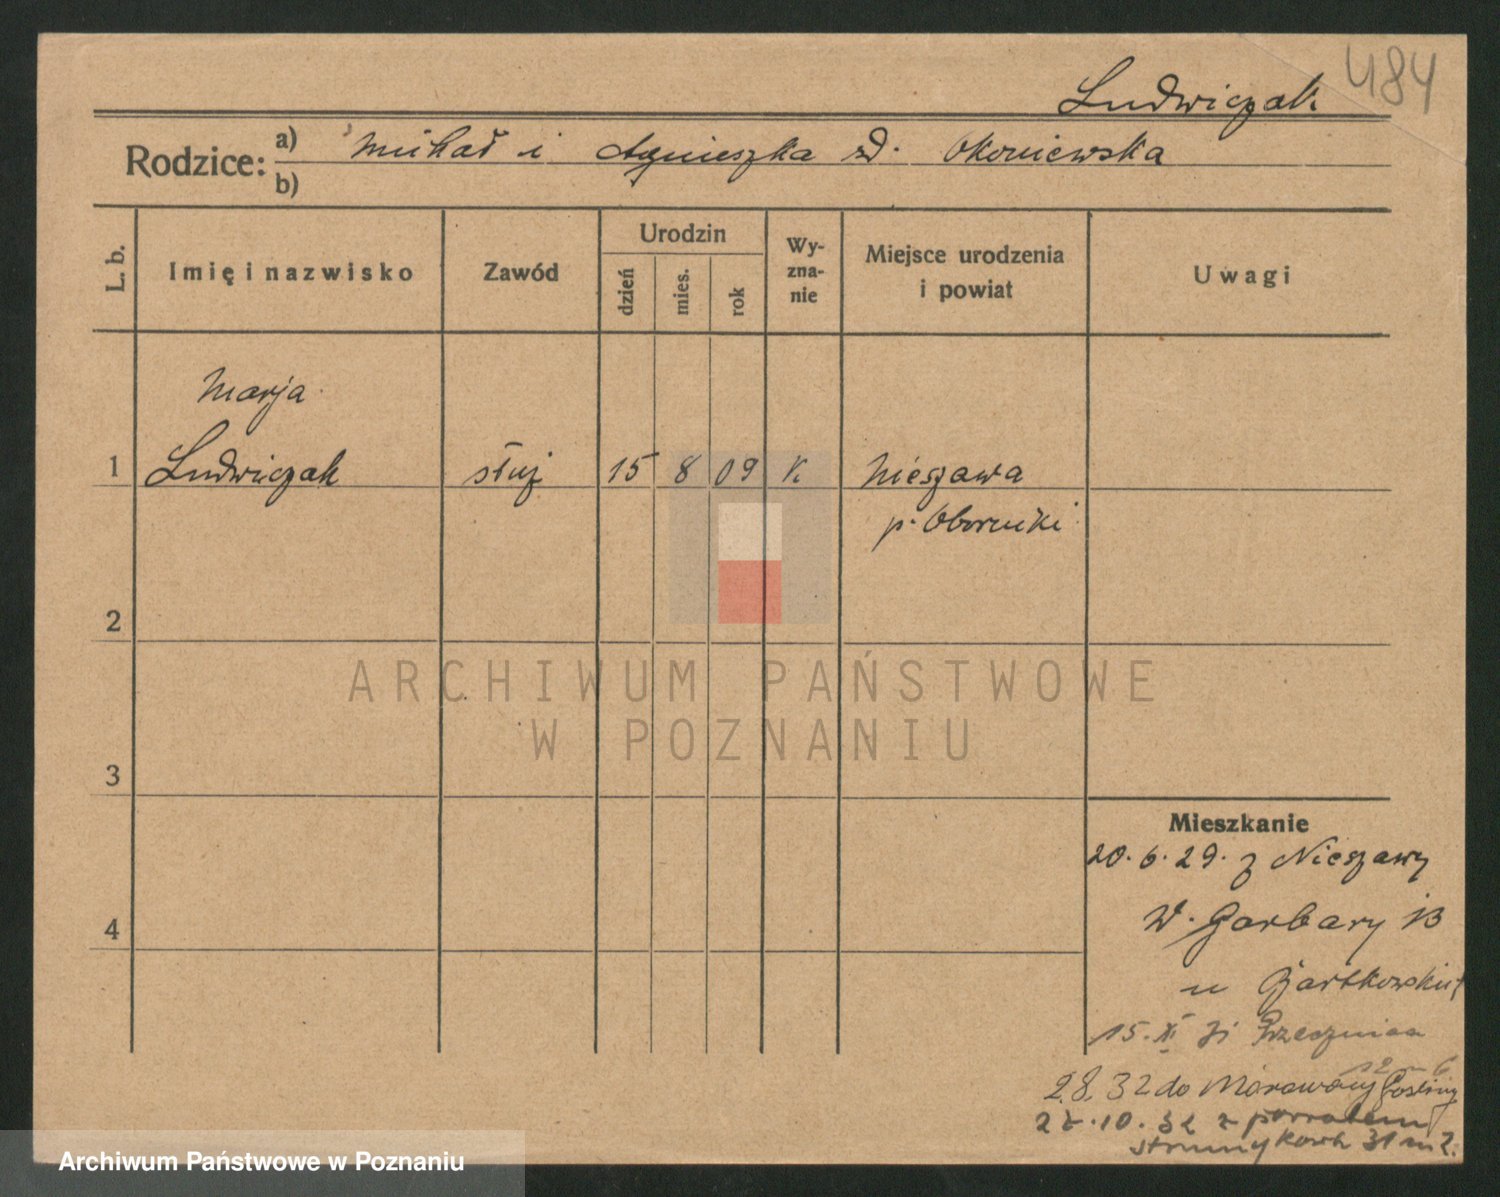 484
Ludwiczak
Rodzice: a) Michał i Agnieszka zd. Okoniewska
b)
L. b.
Imię i nazwisko
Zawód
Urodzin
dzień
mies.
rok
Wy-
zna-
nie
Miejsce urodzenia
i powiat
Uwagi
Marja
1 Ludwiczak służ 15 8 09 K Nieszawa
p. Oborniki
2
3
4
ARCHIWUM PAŃSTWOWE
W POZNANIU
Mieszkanie
20.6.29. z Nieszawy
W. Garbary 13
u Bartkowskich
15. XI
2.8.32 do Murowanej Gośliny
10.32 z powrotem
Strumykowa 31 m 2.
Archiwum Państwowe w Poznaniu